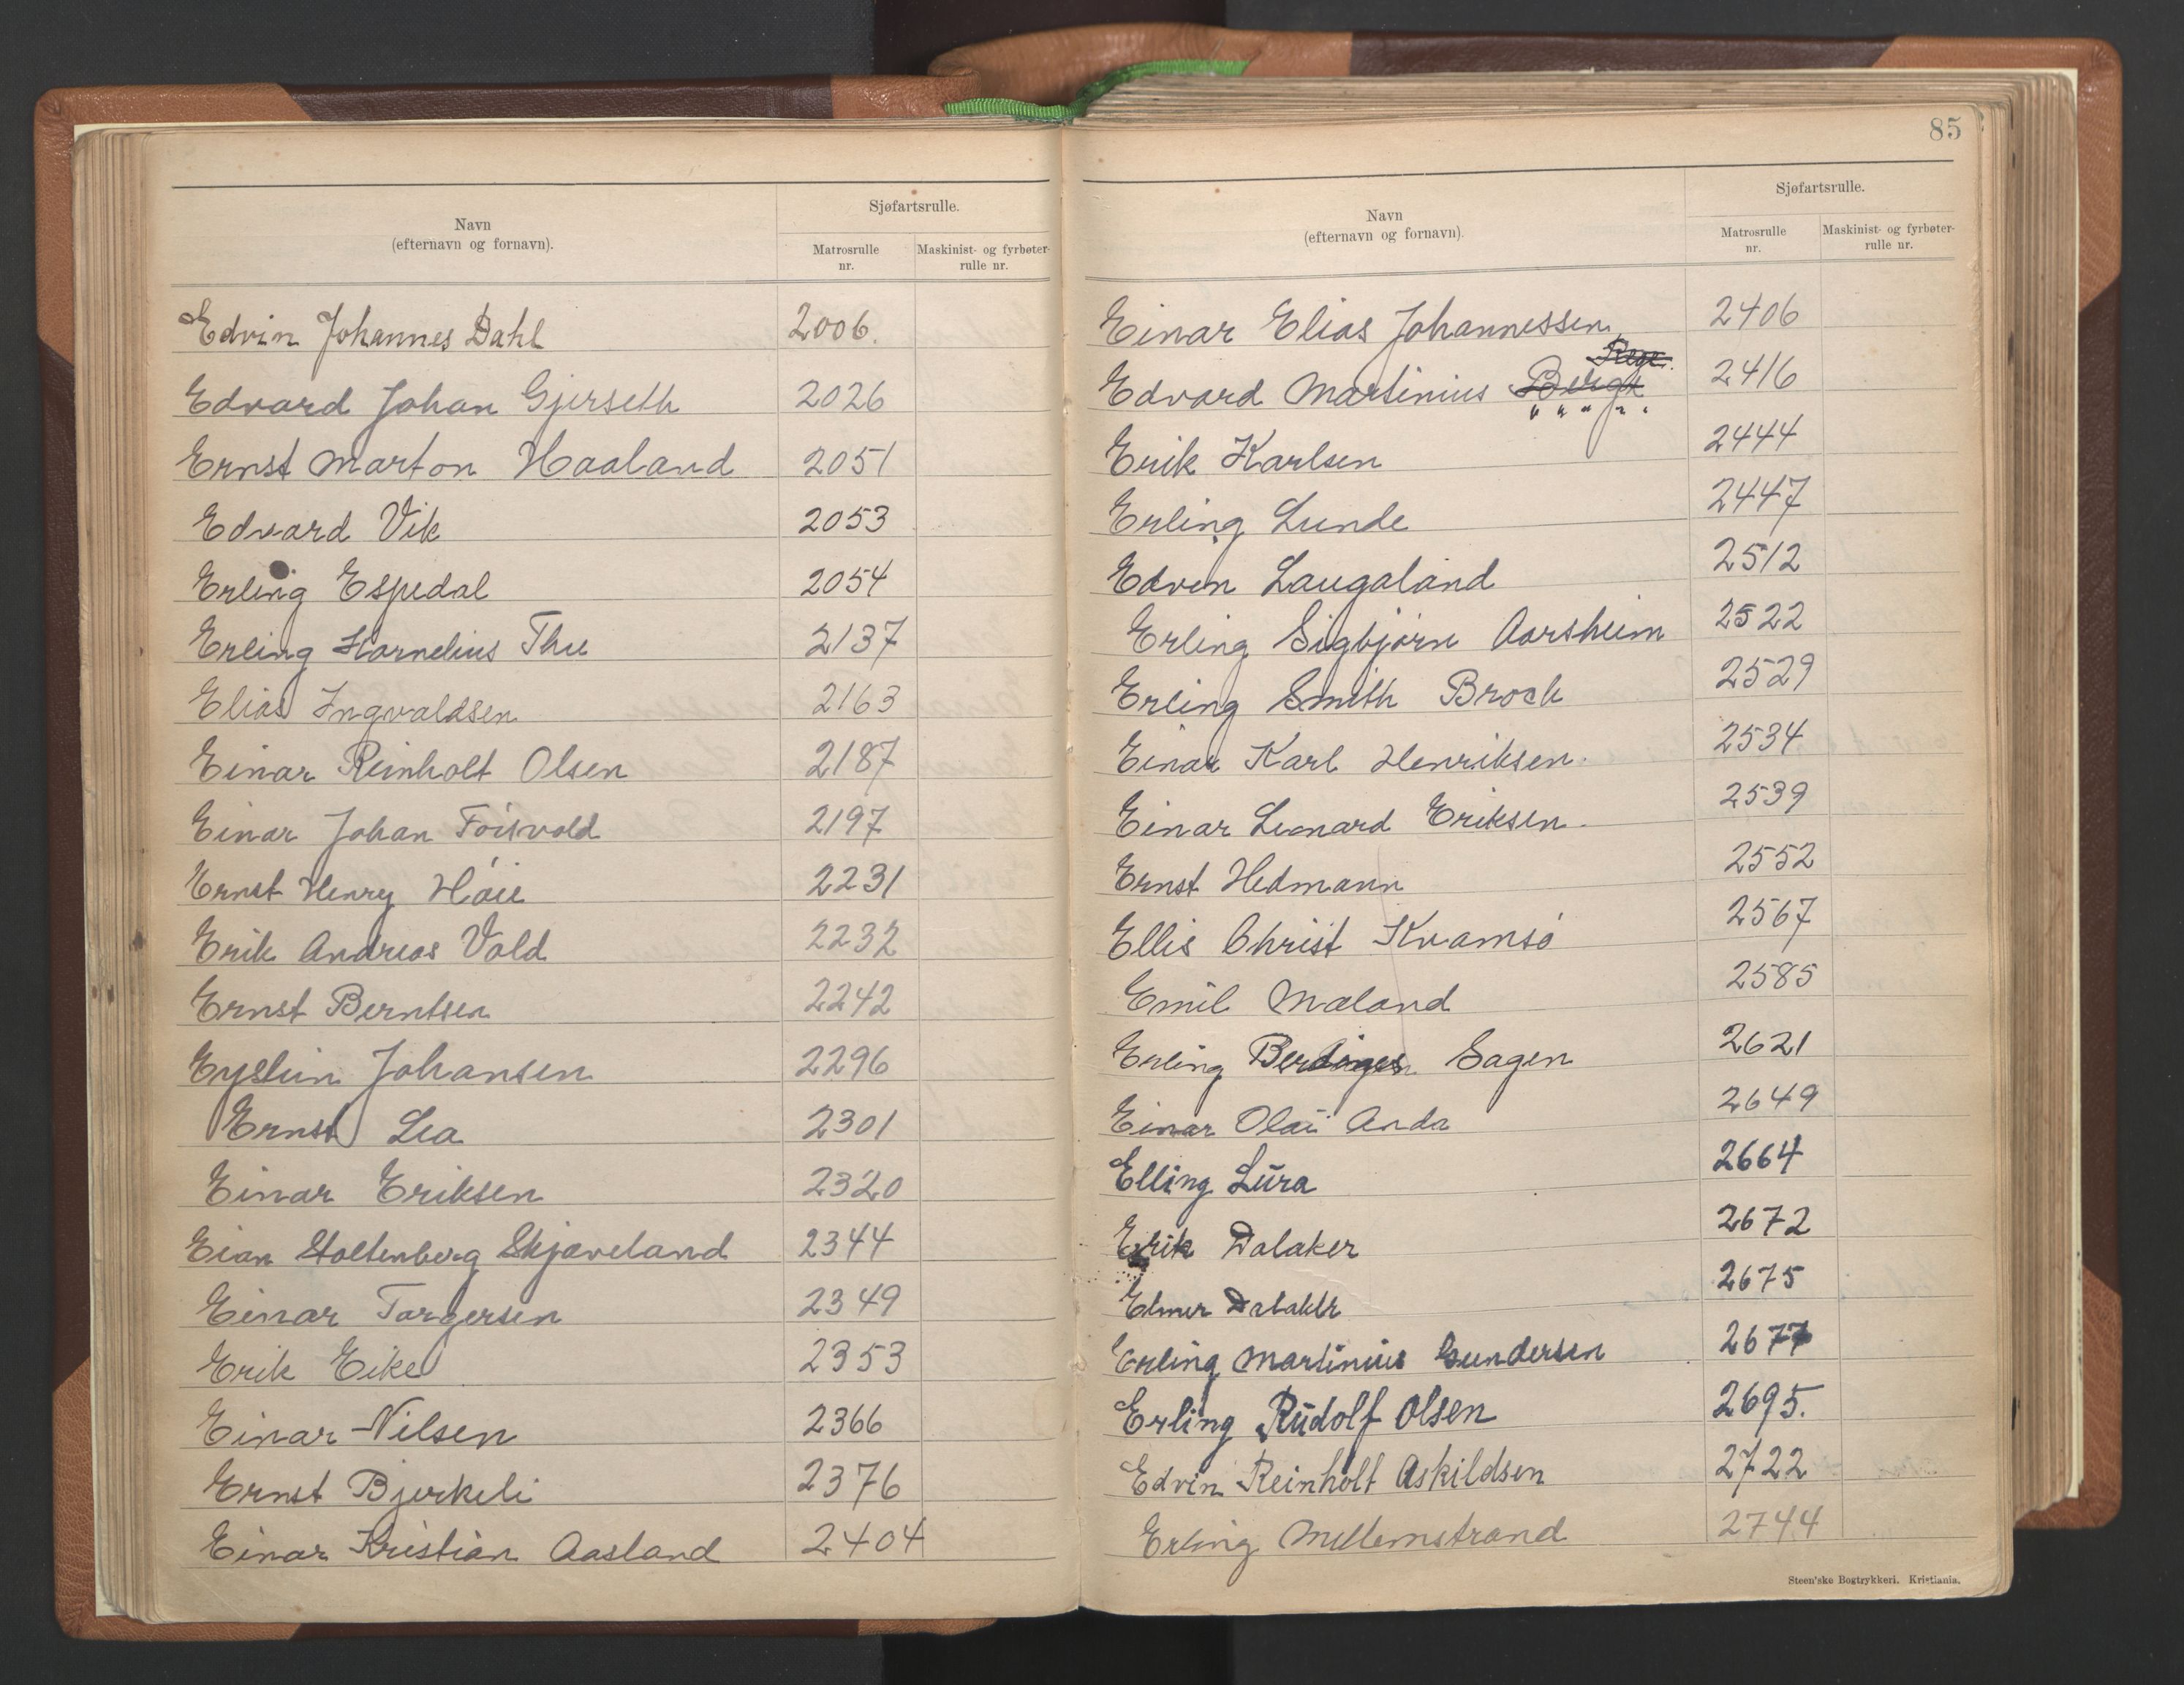 Navn
(efternavn og fornavn).
Sjøfartsrulle.
Matrosrulle
nr.
Maskinist- og fyrbøter-
rulle nr.
Edvin Johannes Dahl 2006.
Edvard Johan Gjerseth 2026
Ernst Marton Haaland 2051
Edvard Vik 2053
Erling Espedal 2054
Erling Kornelius Thu 2137
Elias Ingvaldsen 2163
Einar Reinholt Olsen 2187
Einar Johan 2197
Ernst Henry Høie 2231
Erik Andreas Vold 2232
Ernst Berntsen 2242
Eystein Johansen 2296
Ernst Lea 2301
Einar Eriksen 2320
Stoltenberg Skjæveland 2344
Einar Torgersen 2349
Erik Eike 2353
Einar Nilsen 2366
Ernst Bjerkeli 2376
Einar Kristian Aasland 2404
85
Navn
(efternavn og fornavn).
Sjøfartsrulle.
Matrosrulle
nr.
Maskinist- og fyrbøter-
rulle nr.
Einar Elias Johannessen 2406
Edvard Martinius 2416
Erik Karlsen 2444
Erling Lunde 2447
Edvin Laugaland 2512
Erling Sigbjørn Aarsheim 2522
Erling Smith Brock 2529
Einar Karl Henriksen. 2534
Einar Leonard Eriksen. 2539
Ernst Hedmann 2552
Ellis Christ Kvamsø 2567
Emil Maland 2585
Erling Sagen 2621
Einar Olai Anda 2649
Elling Lura 2664
Erik Dalaker 2672
Elmer Dalaker 2675
Erling Martinius Gundersen 2677
Erling Rudolf Olsen 2695.
Edvin Reinholt Askildsen 2722
Erling Mellemstrand 2744
Steen'ske Bogtrykkeri. Kristiania.